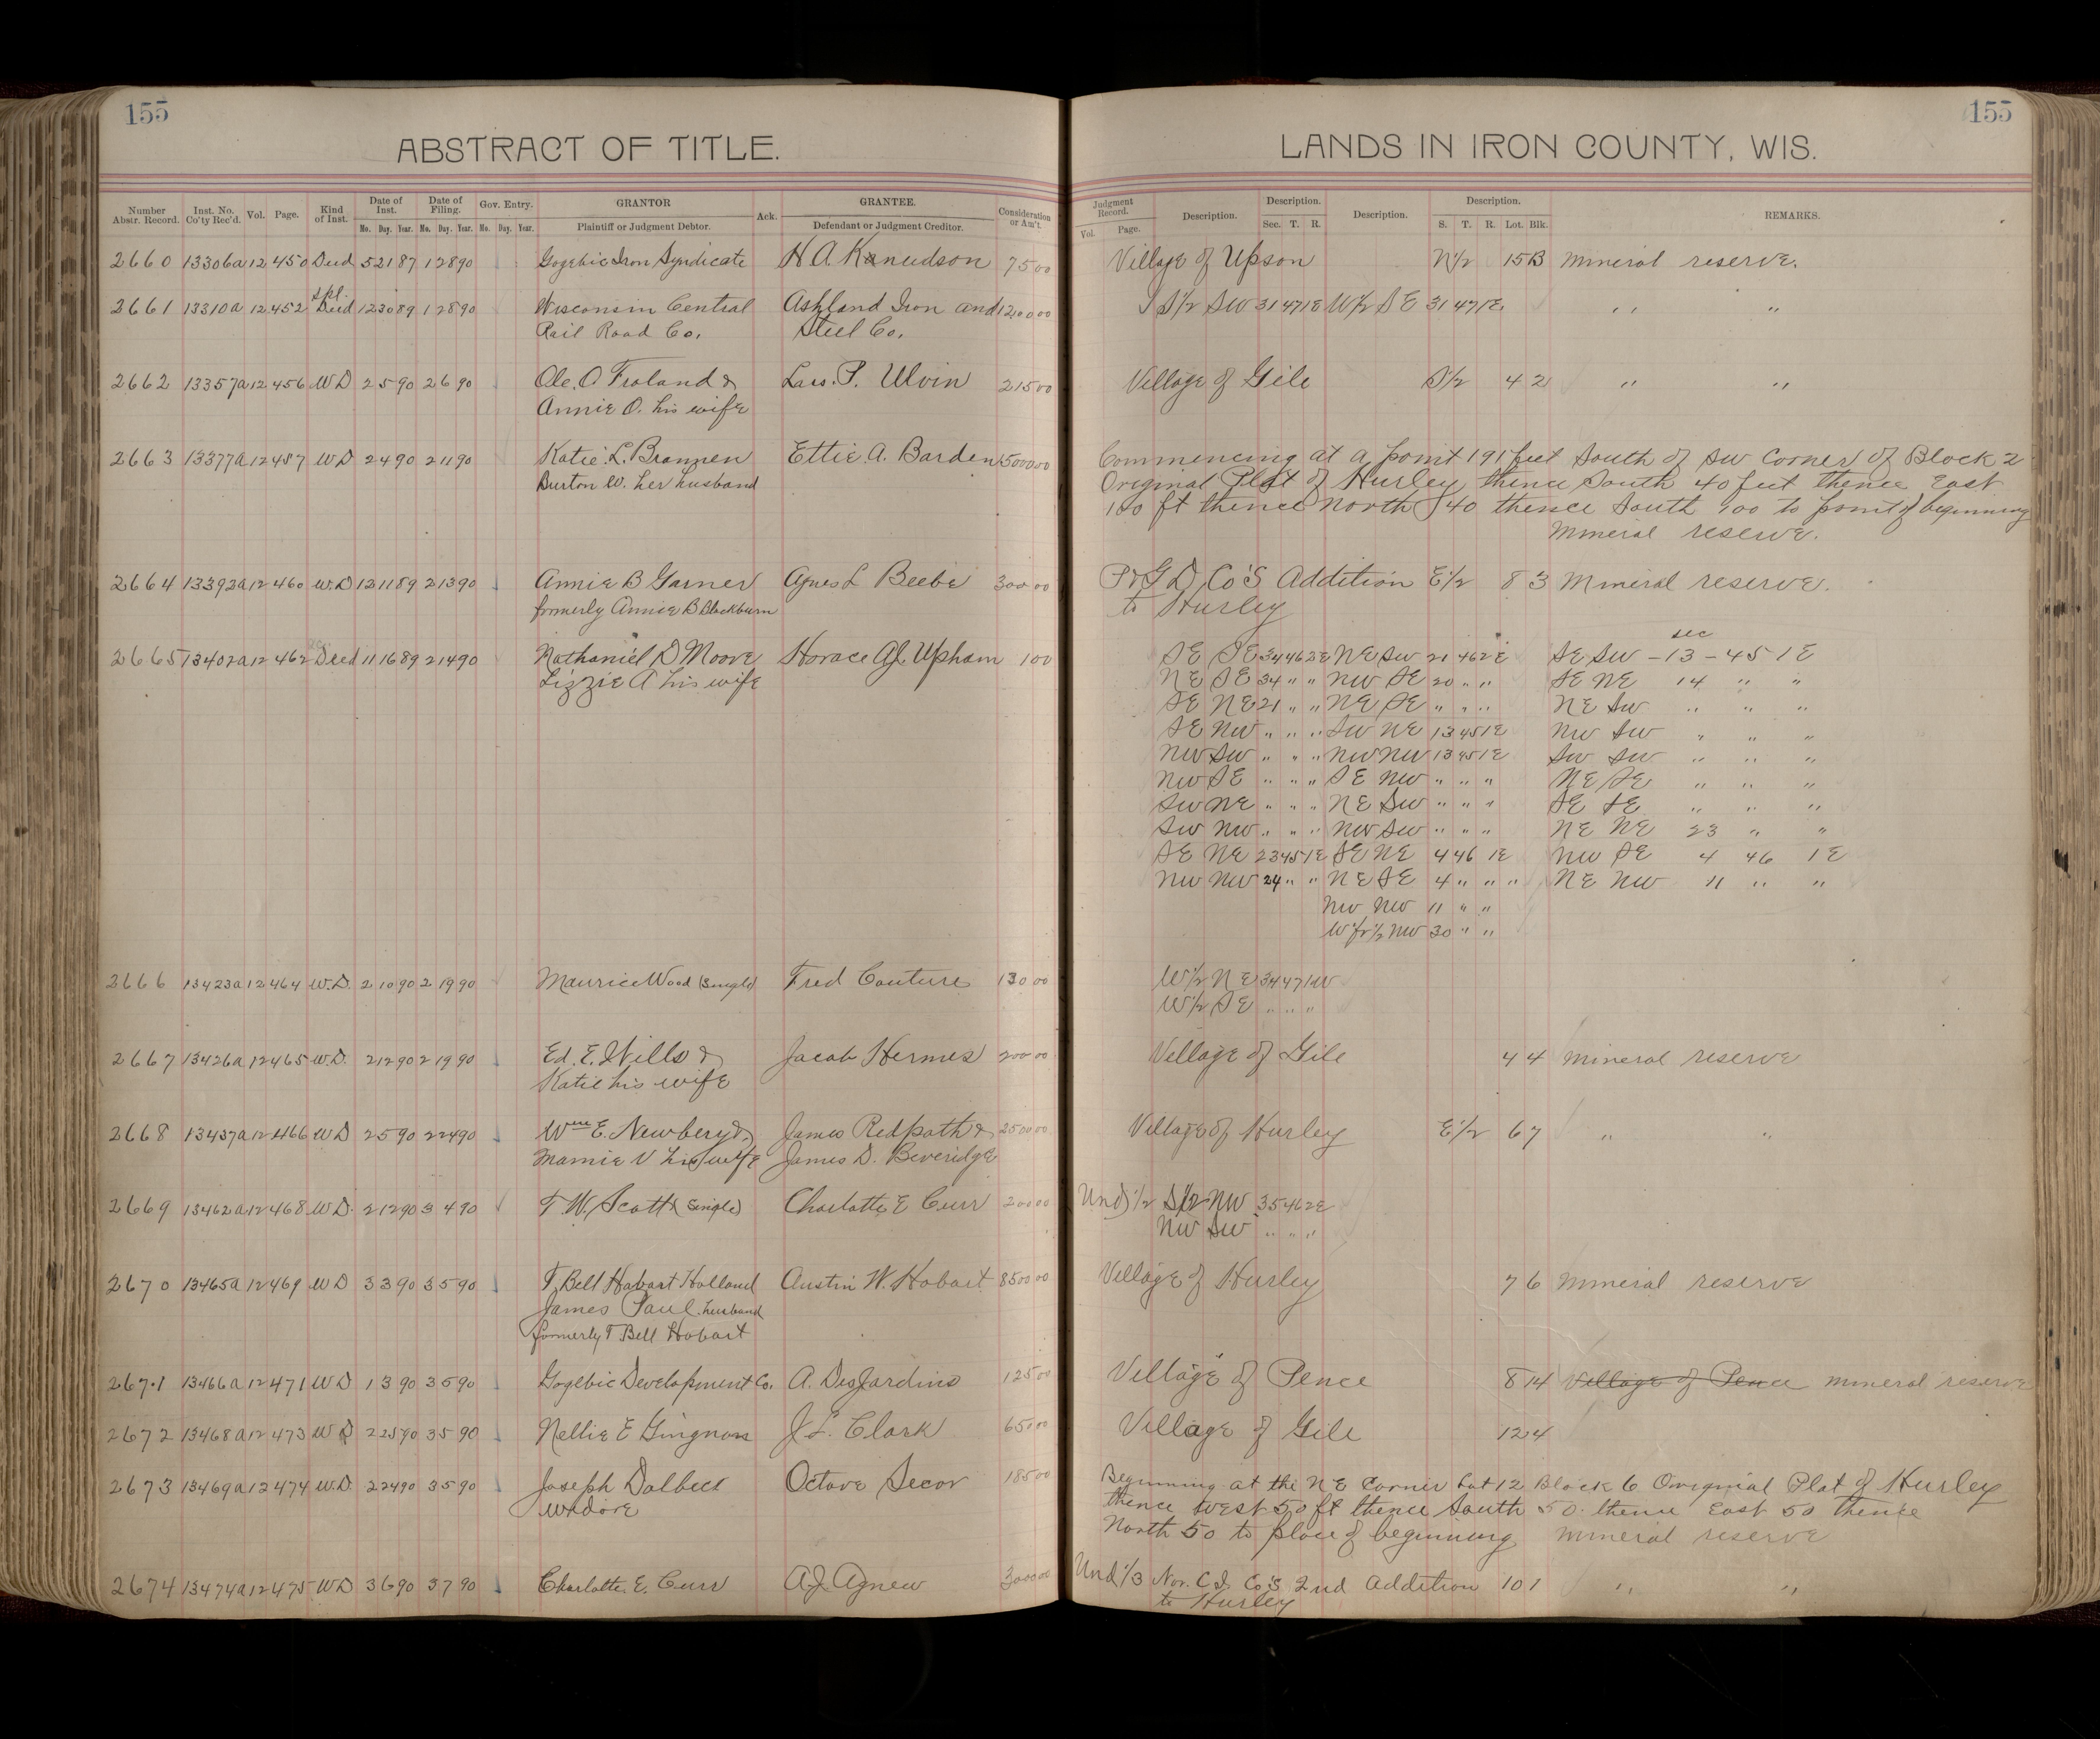 155
155
ABSTRACT OF TITLE.
LANDS IN IRON COUNTY, WIS.
Number Abstr. Record. Inst. No. Co'ty Rec'd. Vol. Page. Kind of Inst. Date of Inst. Mo. Day. Year. Date of Filing. Mo. Day. Year. Gov. Entry. Mo. Day. Year. GRANTOR Plaintiff or Judgment Debtor. Ack. GRANTEE. Defendant or Judgment Creditor. Consideration or Am't.
Judgment Record. Vol. Page. Description. Description. Sec. T. R. Description. Description. S. T. R. Lot. Blk. REMARKS.
2660 13306a 12 450 Deed 5 21 87 1 28 90 Gogebic Iron Syndicate H A. Knudson 75 00 Village of Upson N 1/2 15 B Mineral reserve.
spl.
2661 13310a 12 452 Deed 12 30 89 1 28 90 Wisconsin Central Ashland Iron and 1200 00 S 1/2 SW 31 47 1E W 1/2 SE 31 47 1E " "
Rail Road Co. Steel Co.
2662 13357a 12 456 WD 2 5 90 2 6 90 Ole. O Froland & Lars. P. Ulvin 215 00 Village of Gile S 1/2 4 2 " "
Annie O. his wife
2663 13377a 12 457 WD 2 4 90 2 11 90 Katie. L. Brannen Ettie. A. Barden 5000 00 Commencing at a point 191 feet South of SW Corner of Block 2
Burton W. her husband Original Plat of Hurley thence South 40 feet thence East
100 ft thence North 40 thence South 100 to point of beginning
Mineral reserve.
2664 13392a 12 460 W.D 12 11 89 2 13 90 Annie B Garner Agnes L Beebe 300 00 P & G D Co'S Addition E 1/2 8 3 Mineral reserve.
formerly Annie B Blackburn to Hurley
sec
2665 13402a 12 462 Deed 11 16 89 2 14 90 Nathaniel D Moore Horace A J. Upham 1 00 SE SE 34 46 2E NE SW 21 46 2E SE SW - 13 - 45 1 E
Lizzie A his wife NE SE 34 " " NW SE 20 " " SE NE 14 " "
SE NE 21 " " NE SE " " " NE SW " " "
SE NW " " " SW NE 13 45 1E NW SW " " "
NW SW " " " NW NW 13 45 1E SW SW " " "
NW SE " " " SE NW " " " NE SE " " "
SW NE " " " NE SW " " " SE SE " " "
SW NW " " " NW SW " " " NE NE 23 " "
SE NE 23 45 1E SE NE 4 46 1E NW SE 4 46 1 E
NW NW 24 " " NE SE 4 " " " NE NW 11 " "
NW NW 11 " "
W fr 1/2 NW 30 " "
2666 13423a 12 464 W.D. 2 10 90 2 19 90 Maurice Wood (Single) Fred Couture 130 00 W 1/2 NE 34 47 1W
W 1/2 SE " " "
2667 13426a 12 465 W.D. 2 12 90 2 19 90 Ed. E. Wills & Jacob Hermes 200 00 Village of Gile 4 4 Mineral reserve
Katie his wife
2668 13437a 12 466 WD 2 5 90 2 24 90 Wm E. Newbery & James Redpath & 2500 00 Village of Hurley E 1/2 6 7 " "
Mamie V his wife James D. Beveridge
2669 13462a 12 468 W.D. 2 12 90 3 4 90 T. W. Scott (Single) Charlotte E Curr 200 00 Und 1/2 S 1/2 NW 35 46 2E
NW SW " " "
2670 13465a 12 469 WD 3 3 90 3 5 90 T. Bell Hobart Holland Austin W. Hobart 8500 00 Village of Hurley 7 6 Mineral reserve
James Paul. husband
formerly T Bell Hobart
2671 13466a 12 471 WD 1 3 90 3 5 90 Gogebic Development Co. A. DesJardins 125 00 Village of Pence 8 14 Village of Pence Mineral reserve
2672 13468a 12 473 WD 2 25 90 3 5 90 Nellie E Gingnon J. L. Clark 650 00 Village of Gile 12 4
2673 13469a 12 474 W.D. 2 24 90 3 5 90 Joseph Dalbec Octave Secor 185 00 Beginning at the NE Corner Lot 12 Block 6 Original Plat of Hurley
thence West 50 ft thence South 50. thence East 50 thence
North 50 to place of beginning Mineral reserve
2674 13474a 12 475 WD 3 6 90 3 7 90 Charlotte. E. Curr A. J. Agnew 3000 00 Und 1/3 Nor. C. I. Co'S 2nd Addition 10 1 " "
to Hurley